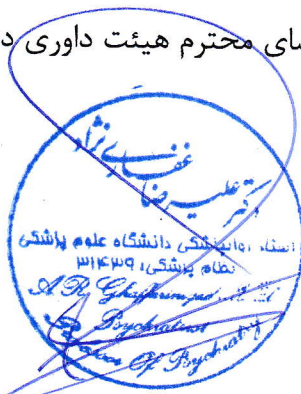 ای محترم هیئت داوری د
دکتر علیرضا
غفاری نژاد
استاد روانپزشکی دانشگاه علوم پزشکی
نظام پزشکی: ۳۱۴۳۹
A. R. Ghaffarinejad
Psychiatrist
Of Psychiatry